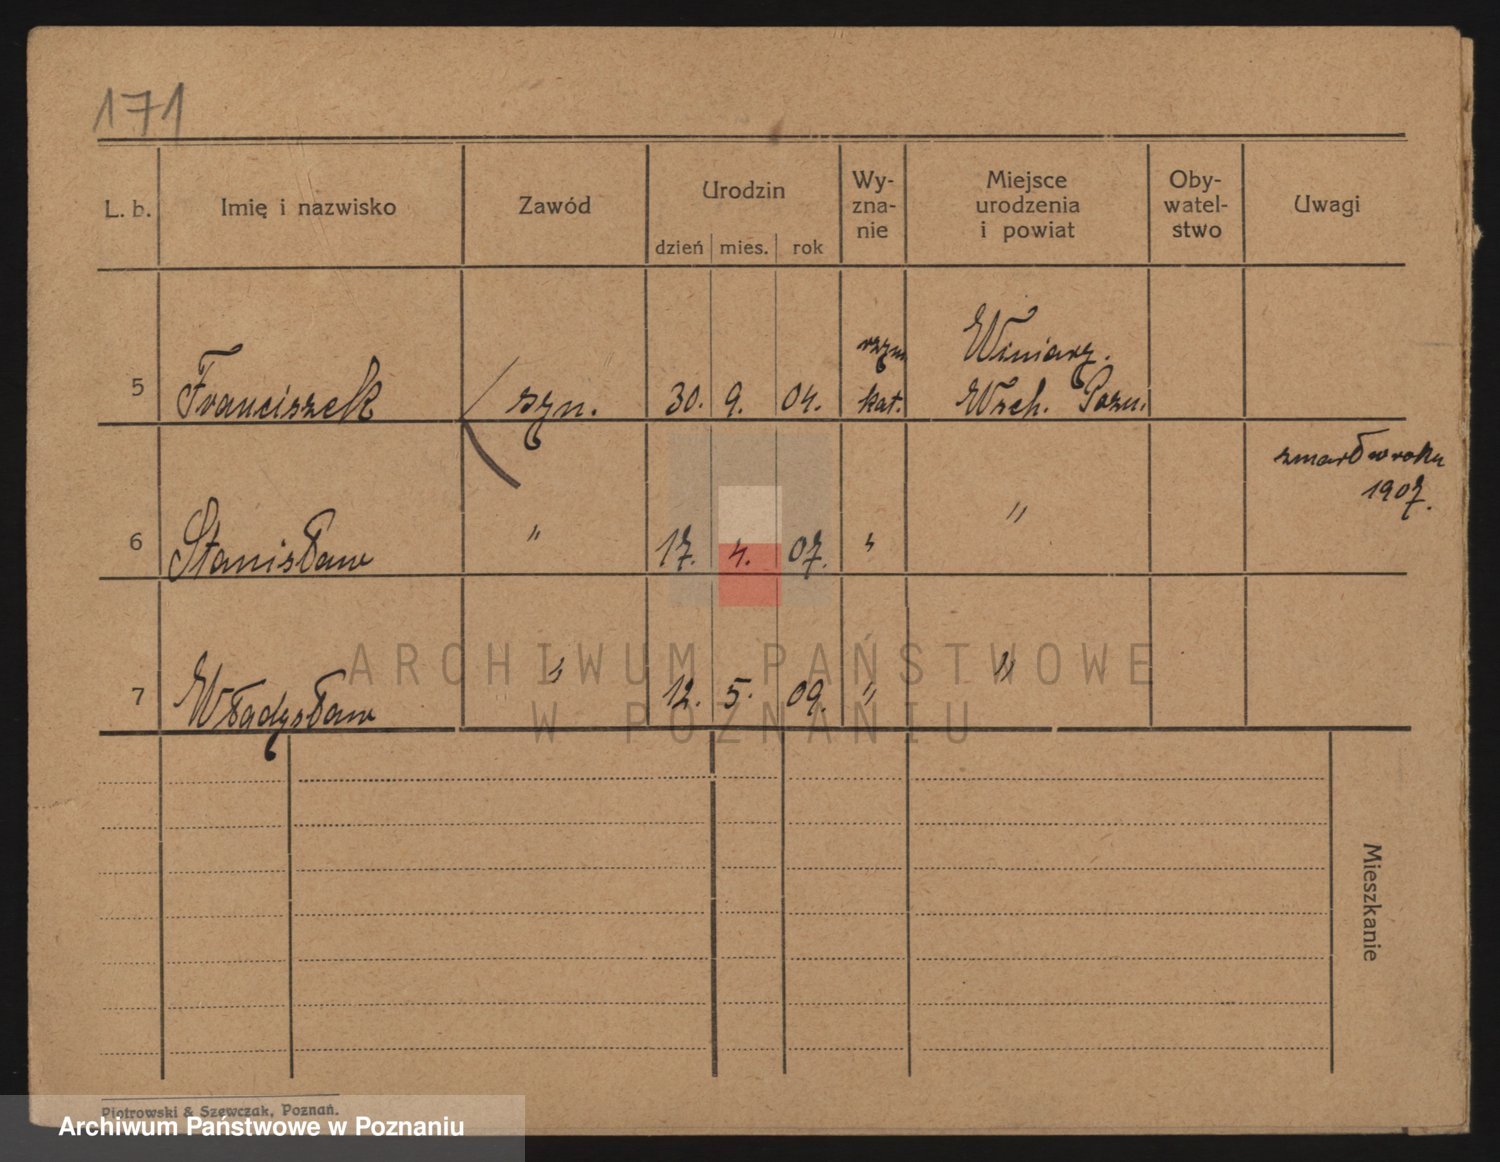 171
L. b. Imię i nazwisko Zawód Urodzin Wy-zna-nie Miejsce urodzenia i powiat Oby-watel-stwo Uwagi
dzień mies. rok
rzym Winiary.
5 Franciszek syn. 30. 9. 04. kat. Wsch. Pozn.
zmarł w roku
1907.
6 Stanisław " 17. 4. 07. " "
7 Władysław " 12. 5. 09. " "
ARCHIWUM PAŃSTWOWE
W POZNANIU
Mieszkanie
Piotrowski & Szewczak, Poznań.
Archiwum Państwowe w Poznaniu